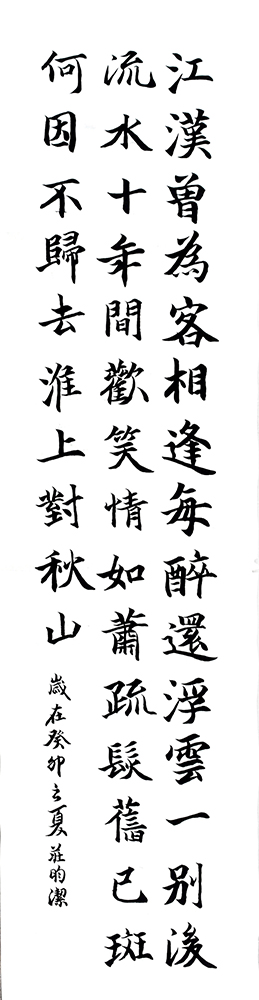 江漢曾為客相逢每醉還浮雲一別後
流水十年間歡笑情如蕭疏髮舊已斑
何因不歸去淮上對秋山
歲在癸卯之夏莊昀潔